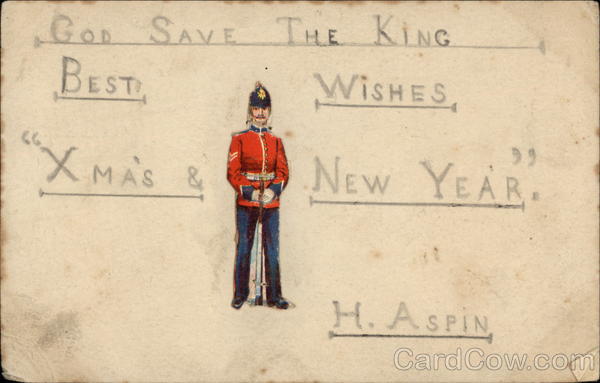 God Save The King
Best Wishes
"Xma's & New Year".
H. Aspin
CardCow.com